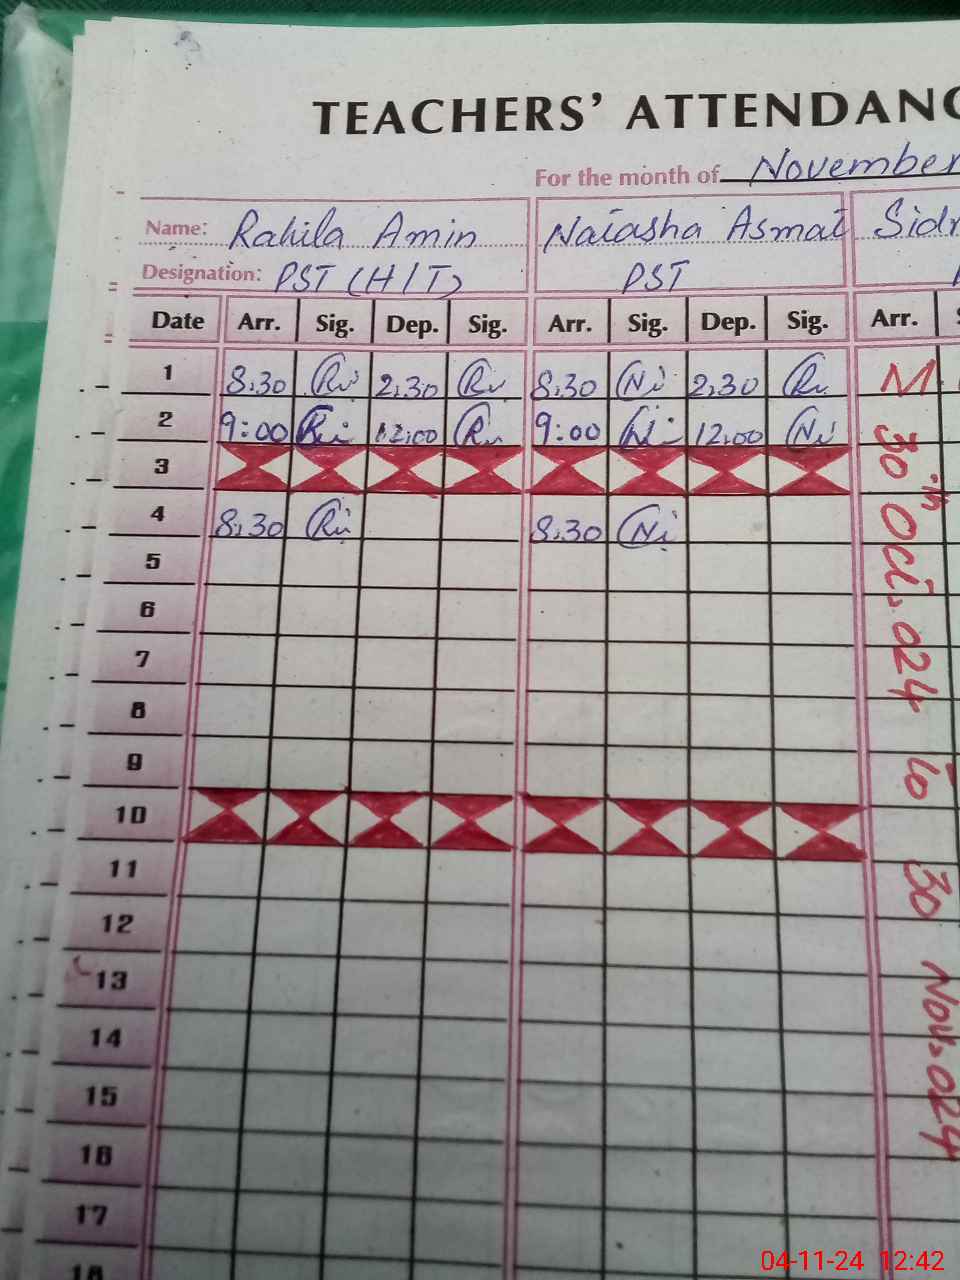 TEACHERS' ATTENDANC
For the month of November
Name: Rahila Amin Natasha Asmat Sidr
Designation: PST (H/T) PST
Date Arr. Sig. Dep. Sig. Arr. Sig. Dep. Sig. Arr.
1 8:30 Ri 2:30 Ri 8:30 Ni 2:30 Ri M
2 9:00 Ri 12:00 Ri 9:00 Ni 12:00 Ni
3
4 8:30 Ri 8:30 Ni
5
6
7
8
9
10
11
12
13
14
15
16
17
18
30 Oct. 024 to 30 Nov. 024
04-11-24 12:42